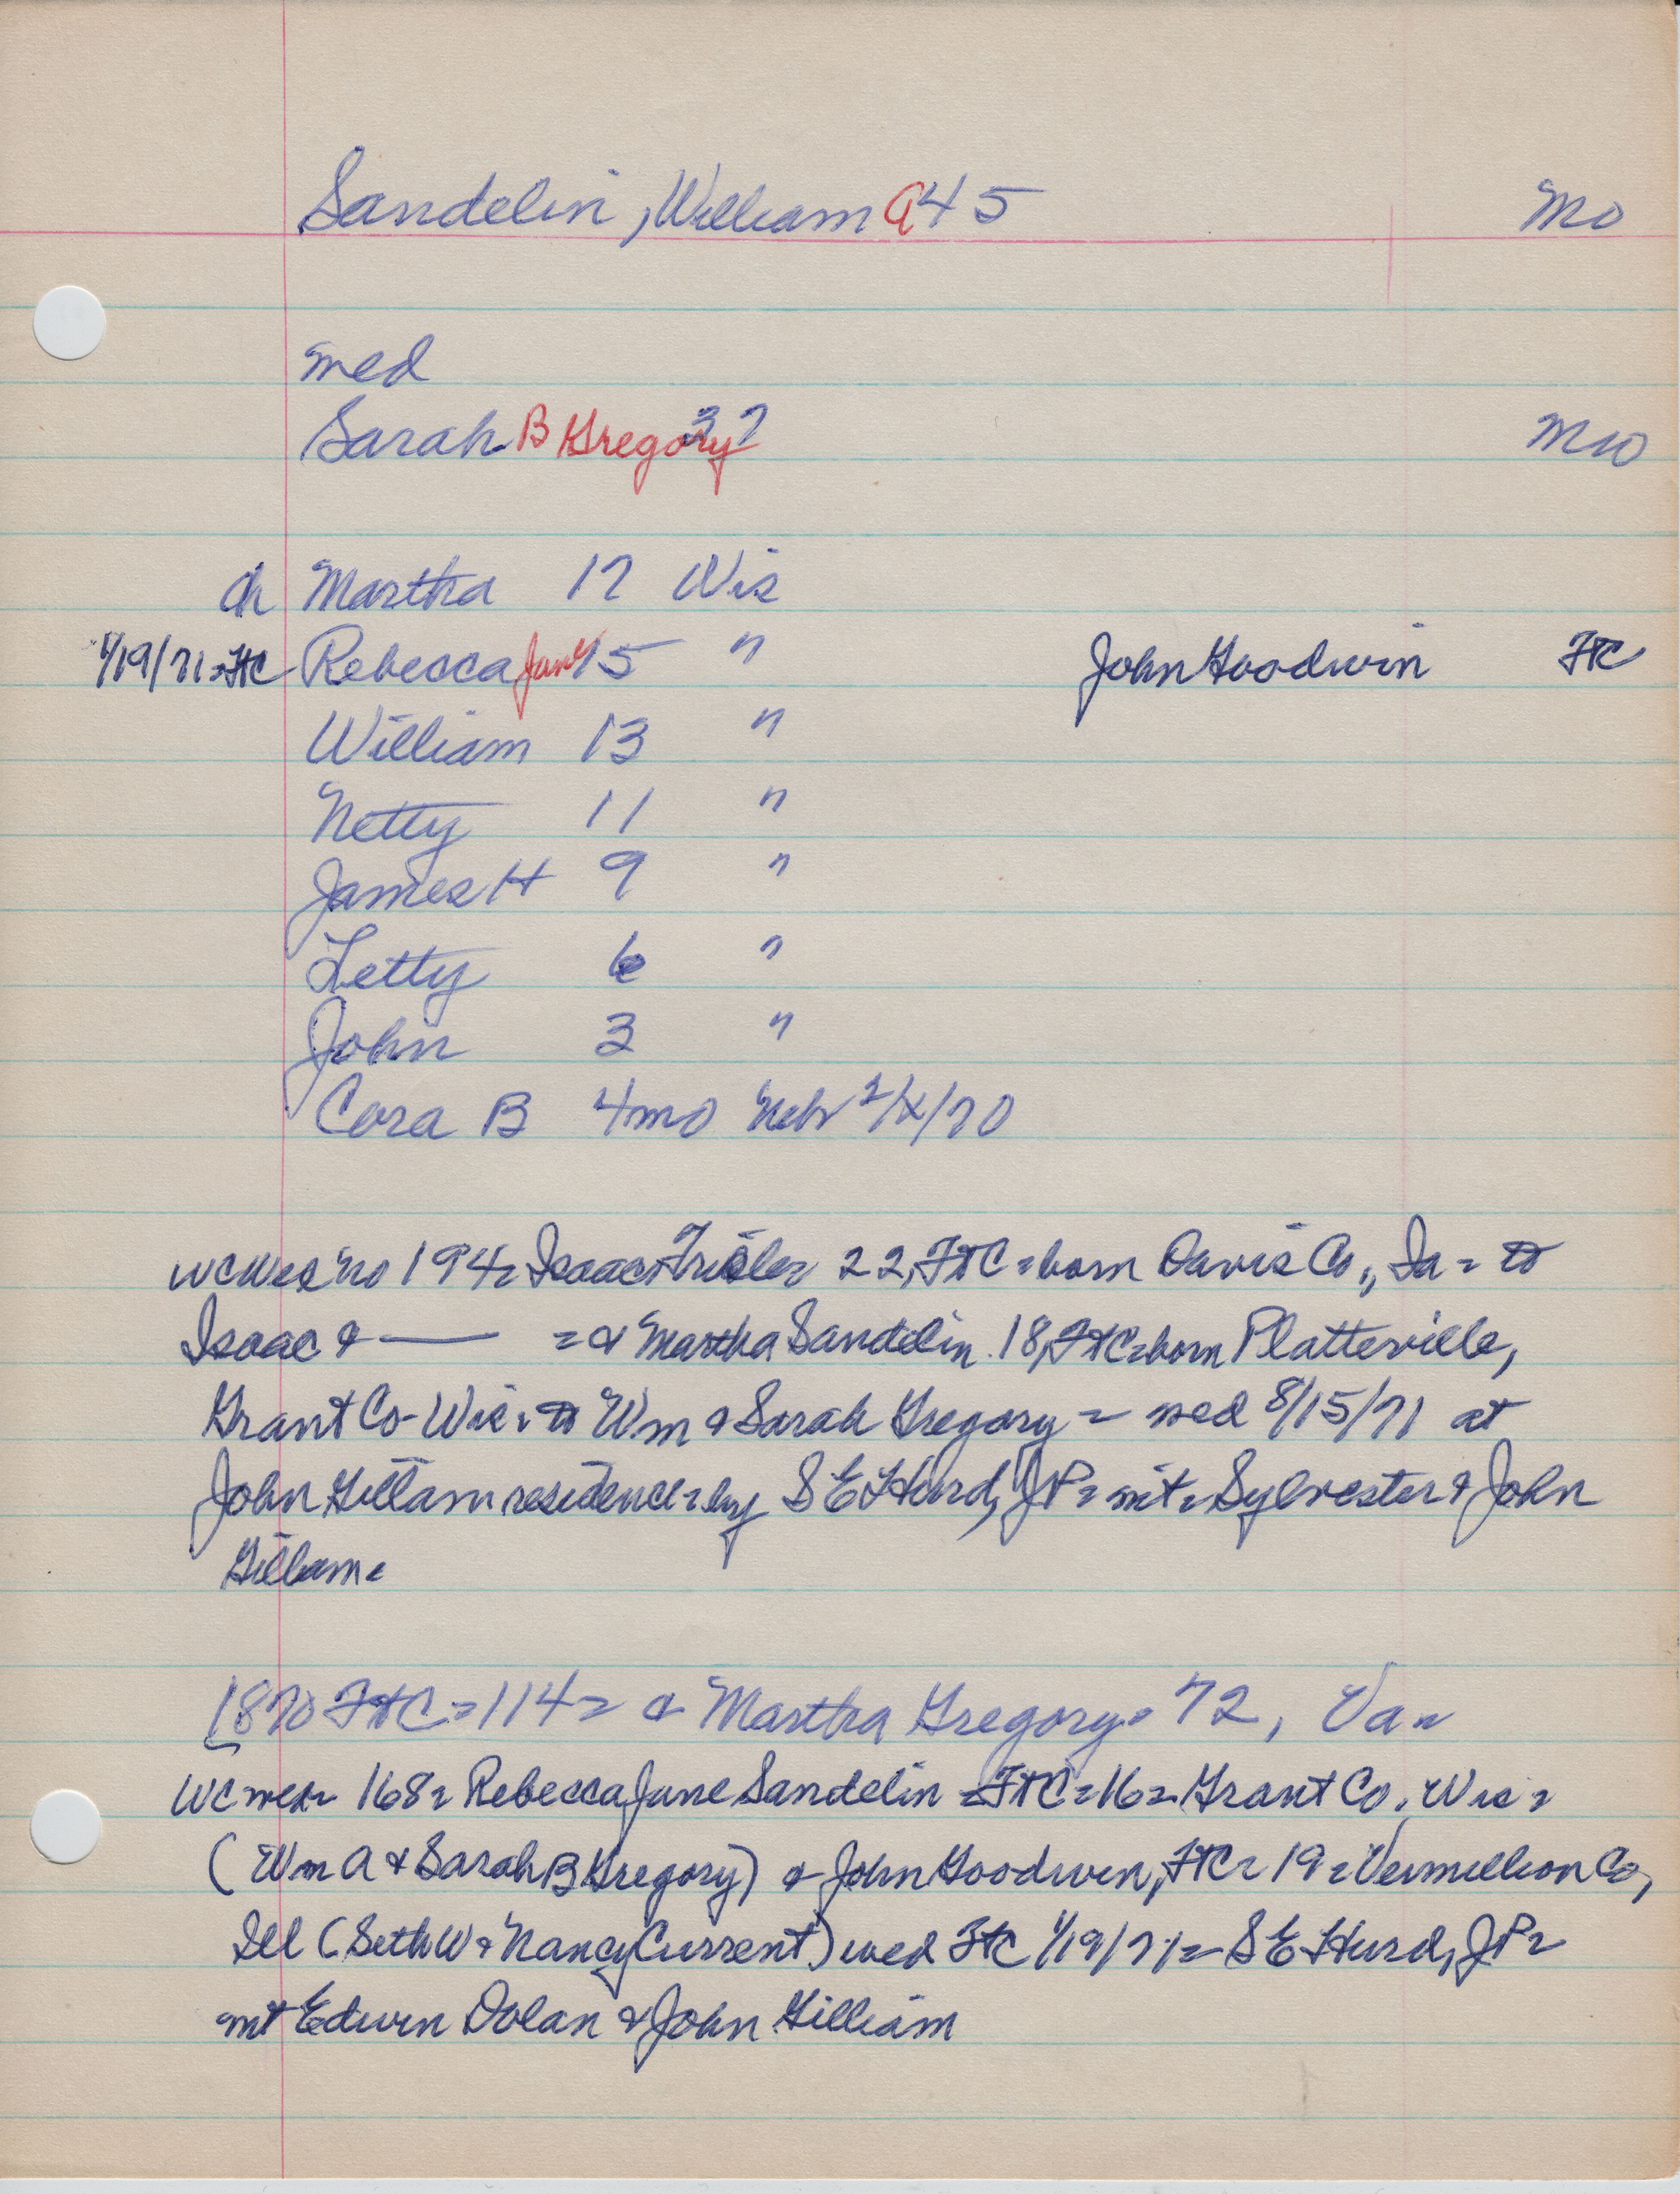 Sandelin, William A 45 Mo
med
Sarah B Gregory 37 Mo
ch Martha 17 Wis
1/19/71=FtC Rebecca Jane 15 " John Goodwin FtC
William 13 "
Netty 11 "
James H 9 "
Letty 6 "
John 3 "
Cora B 4mo Neb 2/x/70
no 194= Isaac 22, FtC = born Davis Co., Ia = to
Isaac & —— = & Martha Sandelin 18, FtC = born Platteville,
Grant Co- Wis. to Wm & Sarah Gregory = med 8/15/71 at
John Gillam residence = by S E Hurd, JP = wit = Sylvester & John
Gillam =
1870 FtC = 114 = & Martha Gregory = 72, Va =
168 = Rebecca Jane Sandelin = FtC = 16 = Grant Co, Wis =
(Wm A & Sarah B Gregory) & John Goodwin, FtC = 19 = Vermillion Co,
Ill (Seth W & Nancy Current) wed FtC 1/19/71 = S E Hurd, JP =
wit Edwin Dolan & John Gilliam